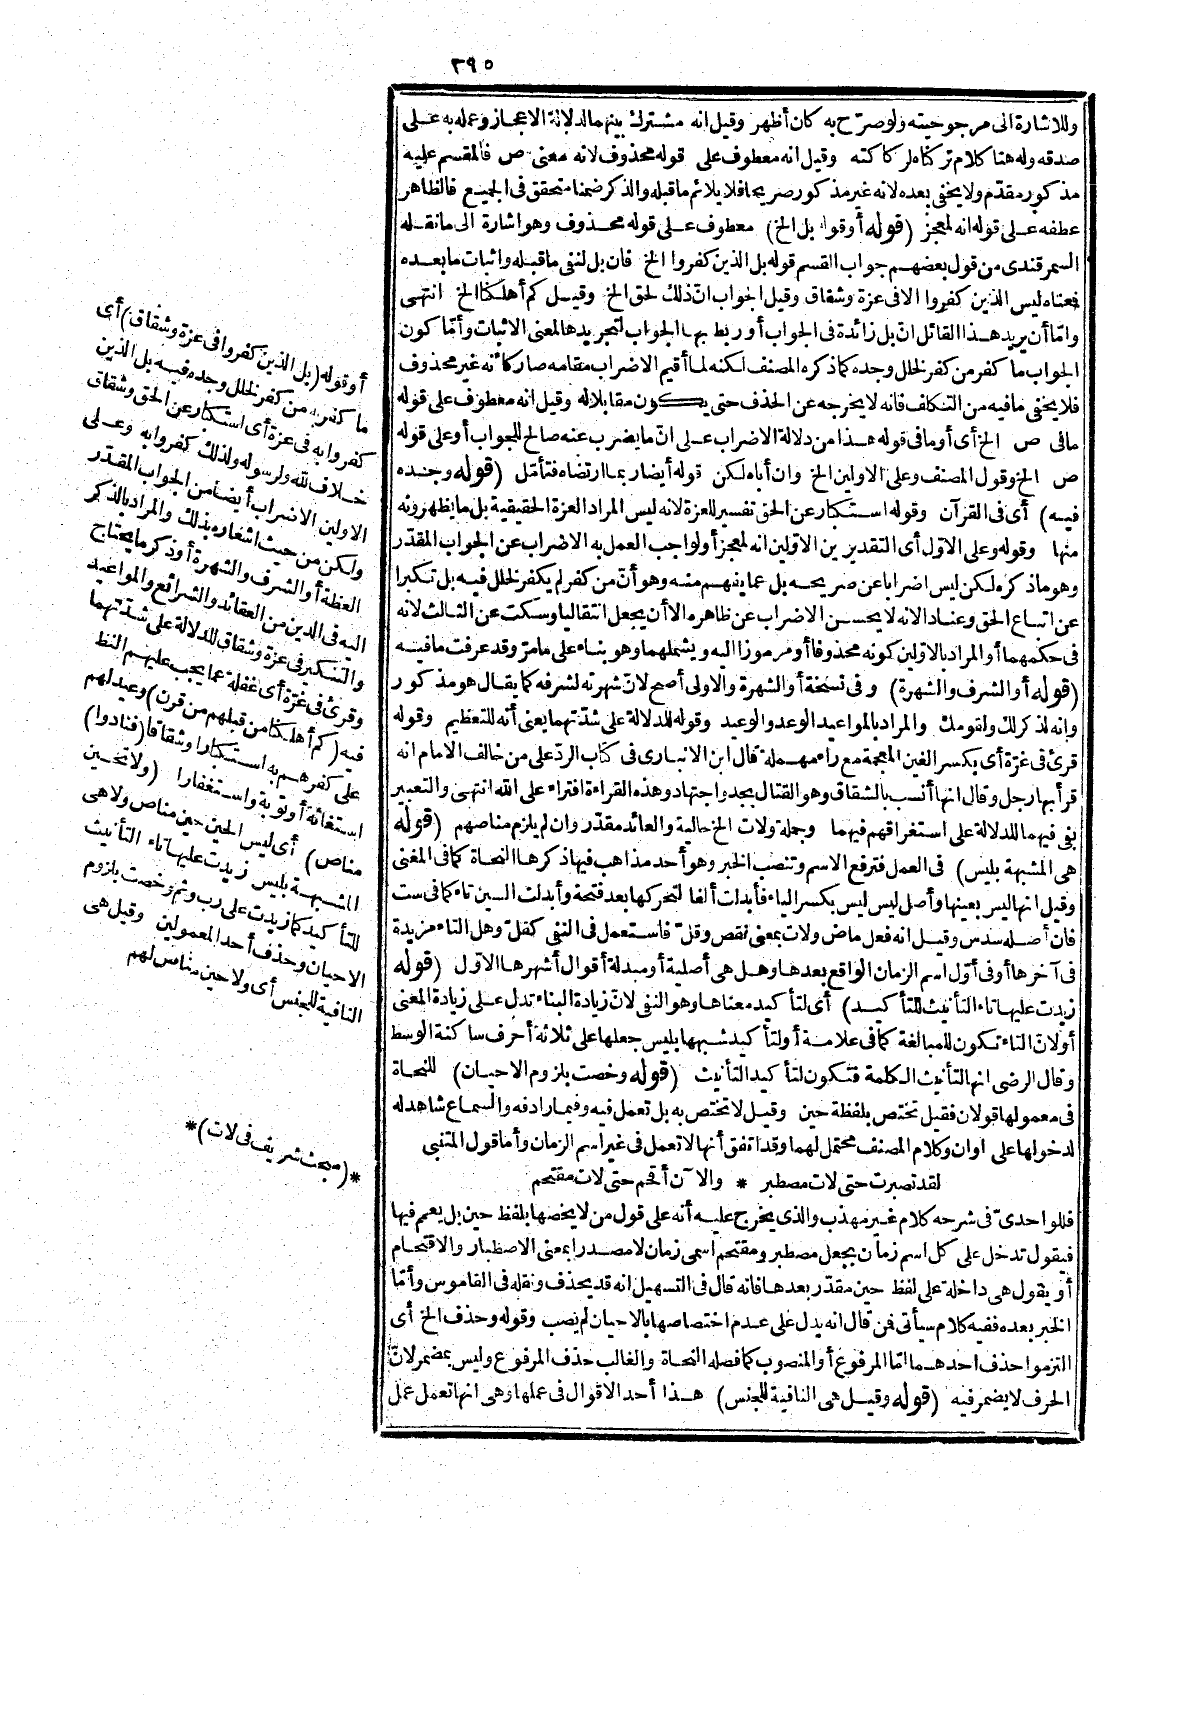 ٢٩٥
وللاشارة الى مرجوحيته ولو صرّح به كان أظهر وقيل انه مشترك بينهما لدلالة الاعجاز وعمله به عـلى
صدقه وله هنا كلام تركناه لركاكته وقيل انه معطوف على قوله محذوف لانه معنى ص فالمقسم عليه
مذكور مقدّم ولا يخفى بعده لانه غير مذكور صريحا فلا يلائم ما قبله والذكر ضمنا متحقق فى الجميع فالظاهر
عطفه عـلى قوله انه لمعجز (قوله أو قوله بل الخ) معطوف عـلى قوله محـذوف وهو اشارة الى ما نقـله
السمرقندى من قول بعضهـم جواب القسم قوله بل الذين كفروا الخ فان بل لنفى ما قبـله واثبات ما بعـده
فمعناه ليس الذين كفروا الا فى عزة وشقاق وقيل الجواب انّ ذلك لحق الخ وقيـل كم أهلـكنا الخ انتهى
وامّا أن يريد هـذا القائل انّ بل زائدة فى الجواب أو ربط بهـا الجواب لتجريدها لمعنى الاثبات وأمّا كون
الجواب ما كفر من كفر لخلل وجده كما ذكره المصنف لكنه لما أقيم الاضراب مقامه صار كأنه غير محذوف
فلا يخفى ما فيه من التكلف فانه لا يخرجه عن الحذف حتى يكون مقابلا له وقيل انه معطوف على قوله
ما فى ص الخ أى أو ما فى قوله هـذا من دلالة الاضراب عـلى انّ ما يضرب عنه صالح للجواب أو على قوله
ص الخ وقول المصنف وعلى الاولين الخ وان أباه لكن قوله أيضا ربما ارتضاه فتأمّل (قوله وجـده
فيـه) أى فى القرآن وقوله استـكبار عن الحق تفسير للعزة لانه ليس المراد العزة الحقيقية بل ما يظهرونه
منها وقوله وعلى الاوّل أى التقديرين الاولين انه لمعجز أو لواجب العمل به الاضراب عن الجواب المقدّر
وهو ما ذكره لكن ليس اضرابا عن صريحه بل عما يفهـم منـه وهو أنّ من كفر لم يكفر لخلل فيـه بل تكبرا
عن اتبـاع الحق وعنادا لانه لا يحسـن الاضراب عن ظاهره الا أن يجعل انتقاليا وسكت عن الثالث لانه
فى حكمهما أو المراد بالاولين كونه محذوفا أو مرموزا اليه ويشملهما وهو بناء على ما مرّ وقد عرفت ما فيـه
(قوله أو الشرف والشهرة) وفى نسخة أو الشهرة والاولى أصح لانّ شهرته لشرفه كما يقال هو مذكور
وانه لذكر لك ولقومك والمراد بالمواعيد الوعد والوعيد وقوله للدلالة على شدّتهما يعنى أنّه للتعظيم وقوله
قرئ فى غرّة أى بكسر الغين المعجمة مع راء مهملة قال ابن الانبارى فى كتاب الردّ على من خالف الامام انه
قرأ بها رجل وقال انها أنسب بالشقاق وهو القتال بجد واجتهاد وهذه القراءة افتراء على الله انتهى والتعبير
بفى فيهما للدلالة على استغراقهم فيهما وجملة ولات الخ حالية والعائد مقدّر وان لم يلزم مناصهم (قوله
هى المشبهة بليس) فى العمل فترفع الاسم وتنصب الخبر وهو أحد مذاهب فيها ذكرها النحاة كما فى المغنى
وقيل انها ليس بعينها وأصل ليس ليس بكسر الياء فأبدلت ألفا لتحركها بعد فتحة وأبدلت السين تاء كما فى ست
فان أصله سدس وقيـل انه فعل ماض ولات بمعنى نقص وقلّ فاستعمل فى النفى كقلّ وهل التاء مزيدة
فى آخرها أو فى أوّل اسم الزمان الواقع بعدها وهل هى أصلية أو مبدلة أقوال أشهرها الاوّل (قوله
زيدت عليها تاء التأنيث للتأكيـد) أى لتأكيد معناها وهو النفى لانّ زيادة البناء تدل عـلى زيادة المعنى
أو لانّ التاء تكون للمبالغة كما فى علامـة أو لتأكيد شبهها بليس جعلها على ثلاثة أحرف ساكنة الوسط
وقال الرضى انها لتأنيث الـكلمة فتـكون لتأكيد التأنيث (قوله وخصت بلزوم الاحيـان) للنحاة
فى معمولها قولان فقيل تختص بلفظة حين وقيـل لا تختص به بل تعمل فيه وفيما رادفه والسمـاع شاهد له
لدخولها على اوان وكلام المصنف محتمل لهما وقد اتفق أنها لا تعمل فى غير اسم الزمان وأما قول المتنبى
لقد تصبرت حتى لات مصطبر * والآن أقحم حتى لات مقتحم
فللواحدىّ فى شرحه كلام غـير مهذب والذى يخرج عليـه أنه على قول من لا يخصها بلفظ حين بل يعمم فيها
فيقول تدخل على كل اسم زمان بجعل مصطبر ومقتحم اسمى زمان لا مصدرا بمعنى الاصطبار والاقتحـام
أو يقول هى داخلة على لفظ حين مقدّر بعدها فانه قال فى التسهيل انه قد يحذف ونقله فى القاموس وأمّا
الخبر بعده ففيه كلام سيأتى فمن قال انه يدل على عـدم اختصاصها بالاحيان لم يصب وقوله وحذف الخ أى
التزموا حذف احدهـما امّا المرفوع أو المنصوب كما فصله النحـاة والغالب حذف المرفوع وليس بمضمر لانّ
الحرف لا يضمر فيه (قوله وقيـل هى النافية للجنس) هـذا أحد الاقوال فى عملها وهى انها تعمل عمل
أو قوله (بل الذين كفروا فى عزة وشقاق) أى
ما كفر به من كفر لخلل وجده فيـه بل الذين
كفروا به فى عزة أى استـكبار عن الحق وشقاق
خـلاف لله ولرسوله ولذلك كفروا به وعـلى
الاولين الاضراب أيضا من الجواب المقـدّر
ولكن من حيث اشعاره بذلك والمراد بالذكر
العظة أو الشرف والشهرة أو ذكر ما يحتاج
اليه فى الدين من العقائد والشرائع والمواعيد
والتنـكير فى عزة وشقاق للدلالة على شدّتهما
وقرئ فى غرّة أى غفلة عما يجب عليهـم النظر
فيه (كم أهلـكنا من قبلهم من قرن) وعيد لهم
على كفرهـم به استـكبارا وشقاقا (فنادوا)
استغاثة أو توبة واستغفارا (ولات حـين
مناص) أى ليس الحين حين مناص ولا هى
المشبهـة بليس زيدت عليها تاء التأنيث
للتأكيد كما زيدت على رب وثم وخصت بلزوم
الاحيان وحذف أحد المعمولين وقيل هى
النافية للجنس أى ولا حين مناص لهم
*(مبحث شريف فى لات)*